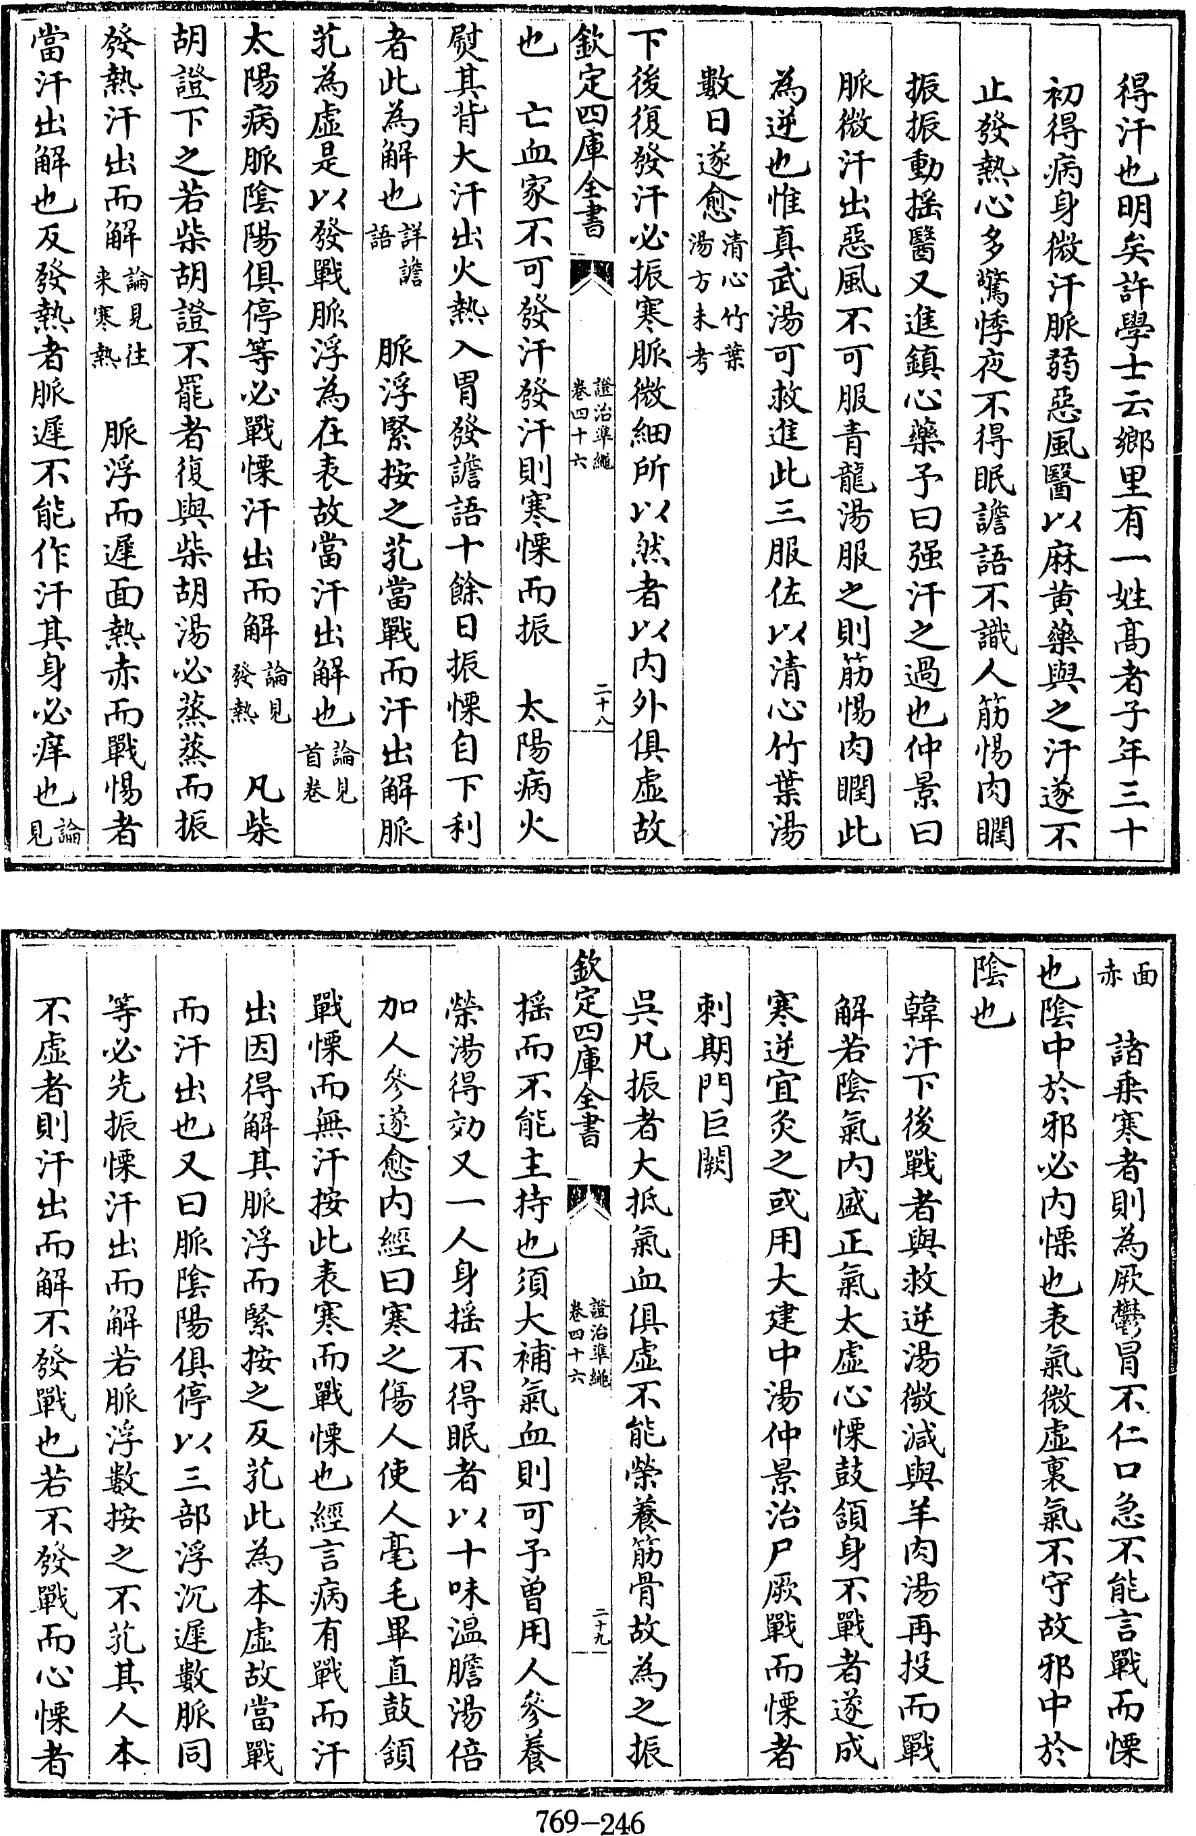 得汗也明矣許學士云鄉里有一姓髙者子年三十
初得病身微汗脈弱惡風醫以麻黄藥與之汗遂不
止發熱心多驚悸夜不得眠譫語不識人筋惕肉瞤
振振動搖醫又進鎮心藥予曰强汗之過也仲景曰
脈微汗出惡風不可服青龍湯服之則筋惕肉瞤此
為逆也惟真武湯可救進此三服佐以清心竹葉湯
數日遂愈清心竹葉湯方未考
下後復發汗必振寒脈微細所以然者以内外俱虚故
欽定四庫全書 證治準繩 卷四十六 二十八
也 亡血家不可發汗發汗則寒慄而振 太陽病火
熨其背大汗出火熱入胃發譫語十餘日振慄自下利
者此為解也詳譫語 脈浮緊按之芤當戰而汗出解脈
芤為虚是以發戰脈浮為在表故當汗出解也論見首卷
太陽病脈陰陽俱停等必戰慄汗出而解論見發熱 凡柴
胡證下之若柴胡證不罷者復與柴胡湯必蒸蒸而振
發熱汗出而解論見往来寒熱 脈浮而遲面熱赤而戰惕者
當汗出解也反發熱者脈遲不能作汗其身必痒也論見
面赤 諸乗寒者則為厥鬱冒不仁口急不能言戰而慄
也陰中於邪必内慄也表氣微虚裏氣不守故邪中於
陰也
韓汗下後戰者與救逆湯微減與羊肉湯再投而戰
解若陰氣内盛正氣太虚心慄鼓頷身不戰者遂成
寒逆宜灸之或用大建中湯仲景治尸厥戰而慄者
刺期門巨闕
呉凡振者大抵氣血俱虚不能榮養筋骨故為之振
欽定四庫全書 證治準繩 卷四十六 二十九
搖而不能主持也須大補氣血則可予曽用人參養
榮湯得効又一人身揺不得眠者以十味温膽湯倍
加人參遂愈内經曰寒之傷人使人毫毛畢直鼓頷
戰慄而無汗按此表寒而戰慄也經言病有戰而汗
出因得解其脈浮而緊按之反芤此為本虚故當戰
而汗出也又曰脈陰陽俱停以三部浮沉遲數脈同
等必先振慄汗出而解若脈浮數按之不芤其人本
不虚者則汗出而解不發戰也若不發戰而心慄者
769-246